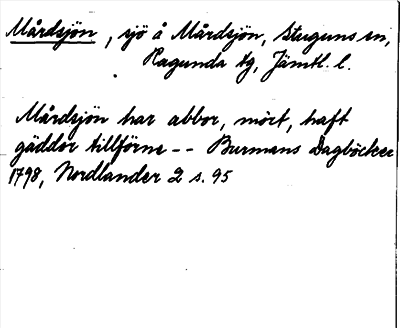 Mårdsjön, sjö å Mårdsjön, Stuguns sn,
Ragunda tg, Jämtl. l.
Mårdsjön har abbor, mört, haft
gäddor tillförne -- Burmans Dagböcker
1798, Nordlander 2 s. 95